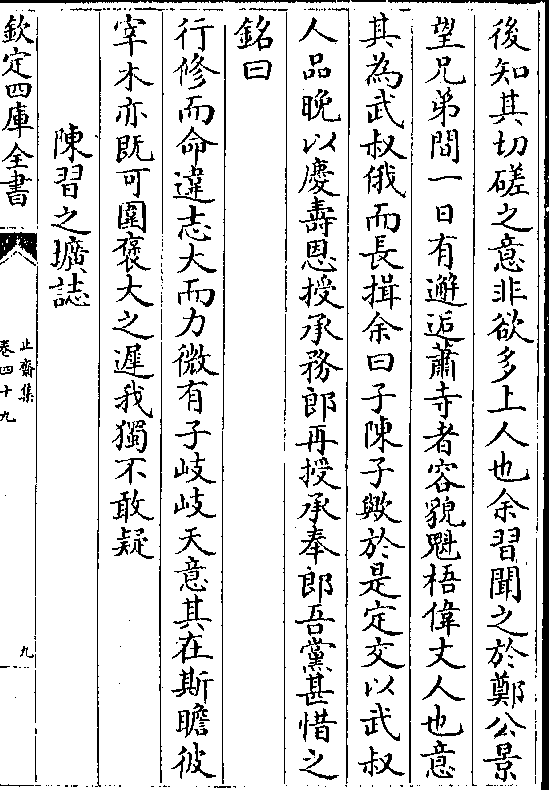 後知其切磋之意非欲多上人也余習聞之於鄭公景
望兄弟間一日有邂逅蕭寺者容貌魁梧偉丈人也意
其為武叔俄而長揖余曰子陳子歟於是定交以武叔
人品晚以慶壽恩授承務郎再授承奉郎吾黨甚惜之
銘曰
行修而命違志大而力微有子岐岐天意其在斯瞻彼
宰木亦既可圍褒大之遲我獨不敢疑
陳習之壙誌
欽定四庫全書
止齋集
卷四十九
九